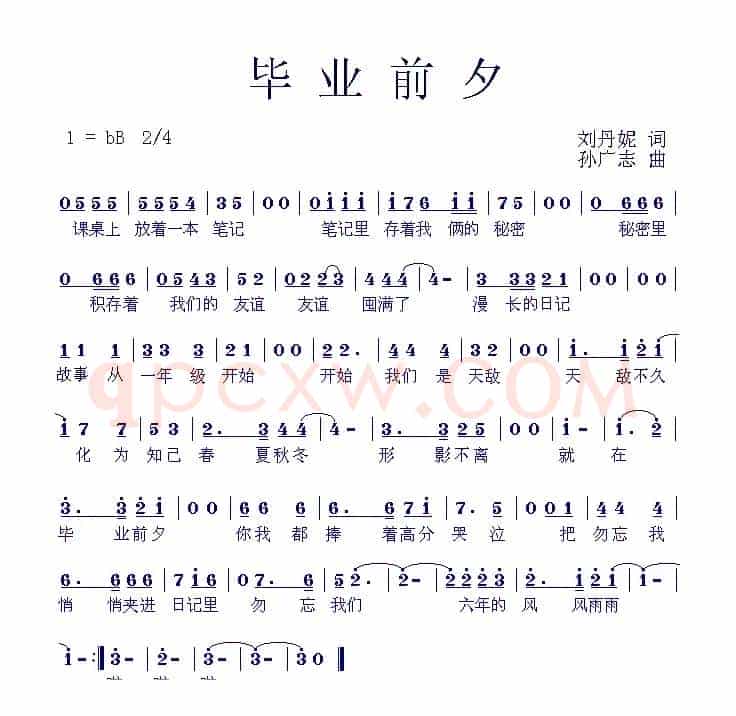 毕业前夕
1 = bB 2/4
刘丹妮 词
孙广志 曲
0555 | 5554 | 35 | 00 | 0iii | i76 ii | 75 | 00 | 0 666 |
课桌上 放着一本 笔记 笔记里 存着我 俩的 秘密 秘密里
0 666 | 0543 | 52 | 0223 | 444 | 4- | 3 3321 | 00 | 00 |
积存着 我们的 友谊 友谊 囤满了 漫 长的日记
11 1 | 33 3 | 21 | 00 | 22. | 44 4 | 32 | 00 | i. i | i2i |
故事 从 一年 级 开始 开始 我们 是 天敌 天 敌不久
i7 7 | 53 | 2. 3 | 44 | 4- | 3. 325 | 00 | i- | i. 2 |
化 为 知己 春 夏秋冬 形 影不离 就 在
3. 32i | 00 | 66 6 | 6. 67i | 7. 5 | 001 | 44 4 |
毕 业前夕 你我 都 捧 着高分 哭 泣 把 勿忘 我
6. 663 | 7i6 | 07. 6 | 52. | 2- | 2223 | 2. i2i | i |
悄 悄夹进 日记里 勿 忘 我们 六年的 风 风雨雨
i- :‖ 3- | 2- | 3- | 3- | 30 ‖
qpcxw.COM